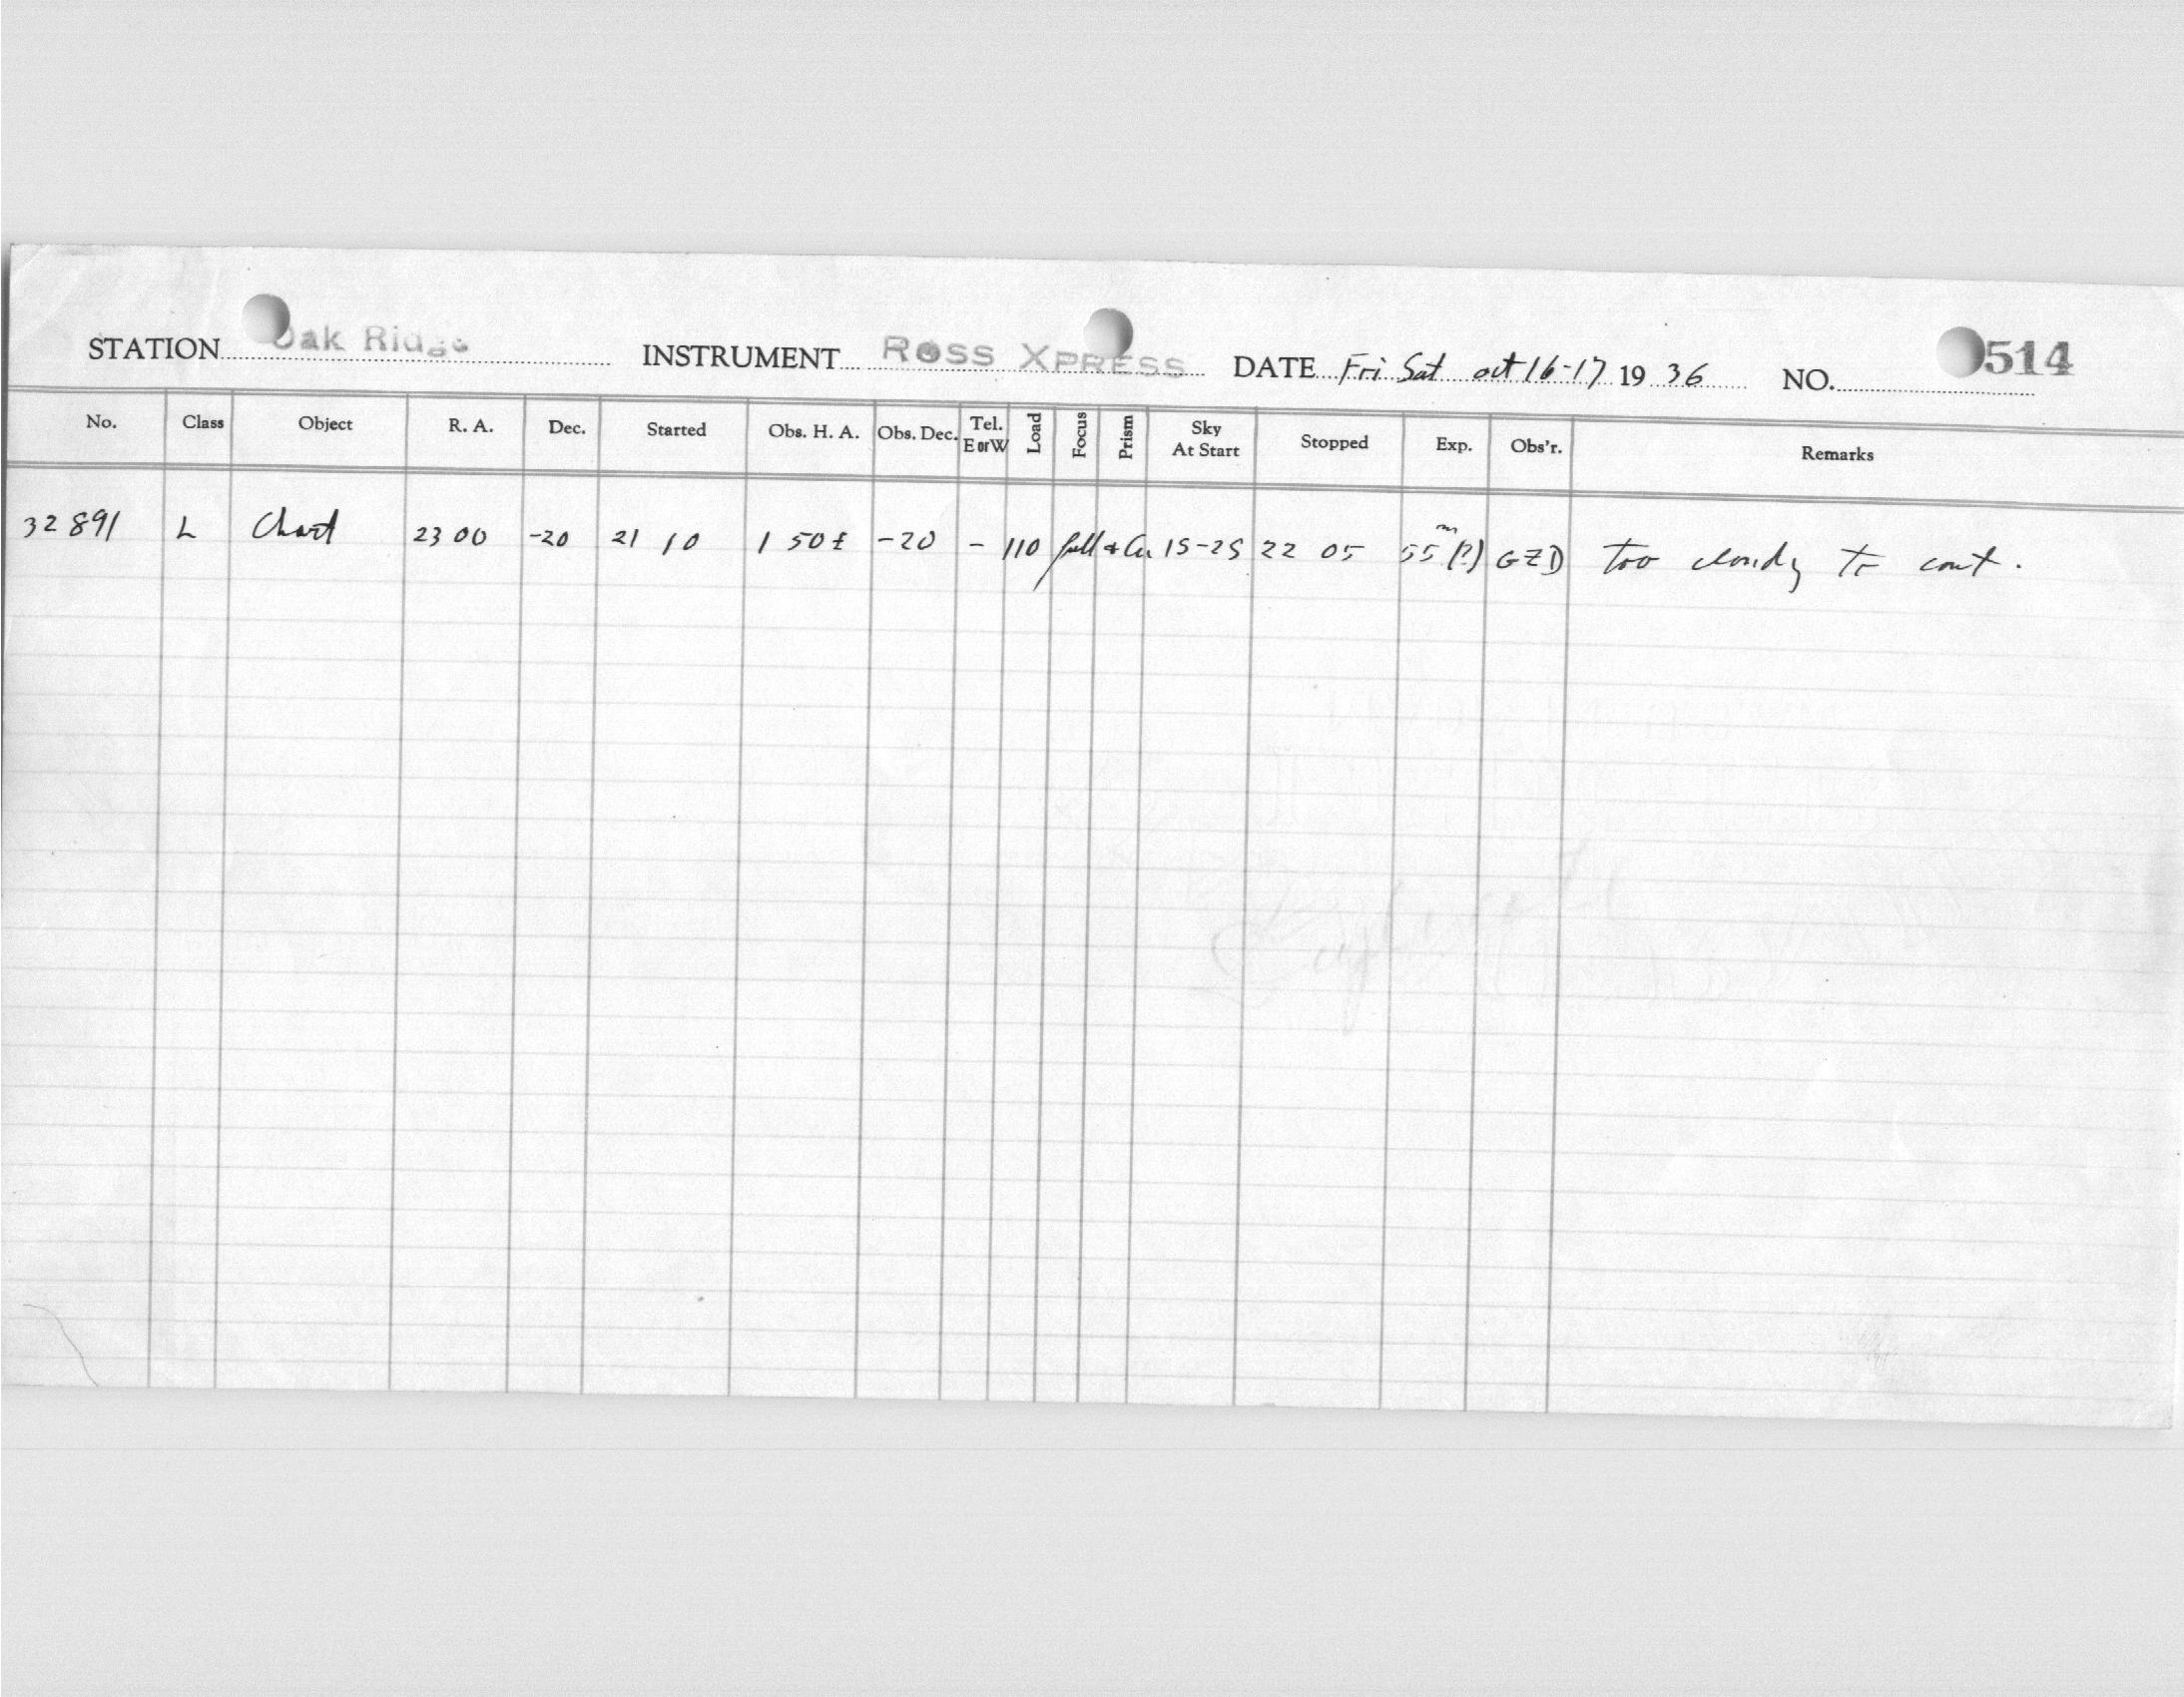 STATION Oak Ridge INSTRUMENT ROSS XPRESS DATE Fri Sat oct 16-17 19 36 NO. 514
No. Class Object R. A. Dec. Started Obs. H. A. Obs. Dec. Tel. E or W Load Focus Prism Sky At Start Stopped Exp. Obs'r. Remarks
32891 L Chart 23 00 -20 21 10 1 50 ± -20 - 110 full 15-25 22 05 55 m (?) GZD too cloudy to cont.